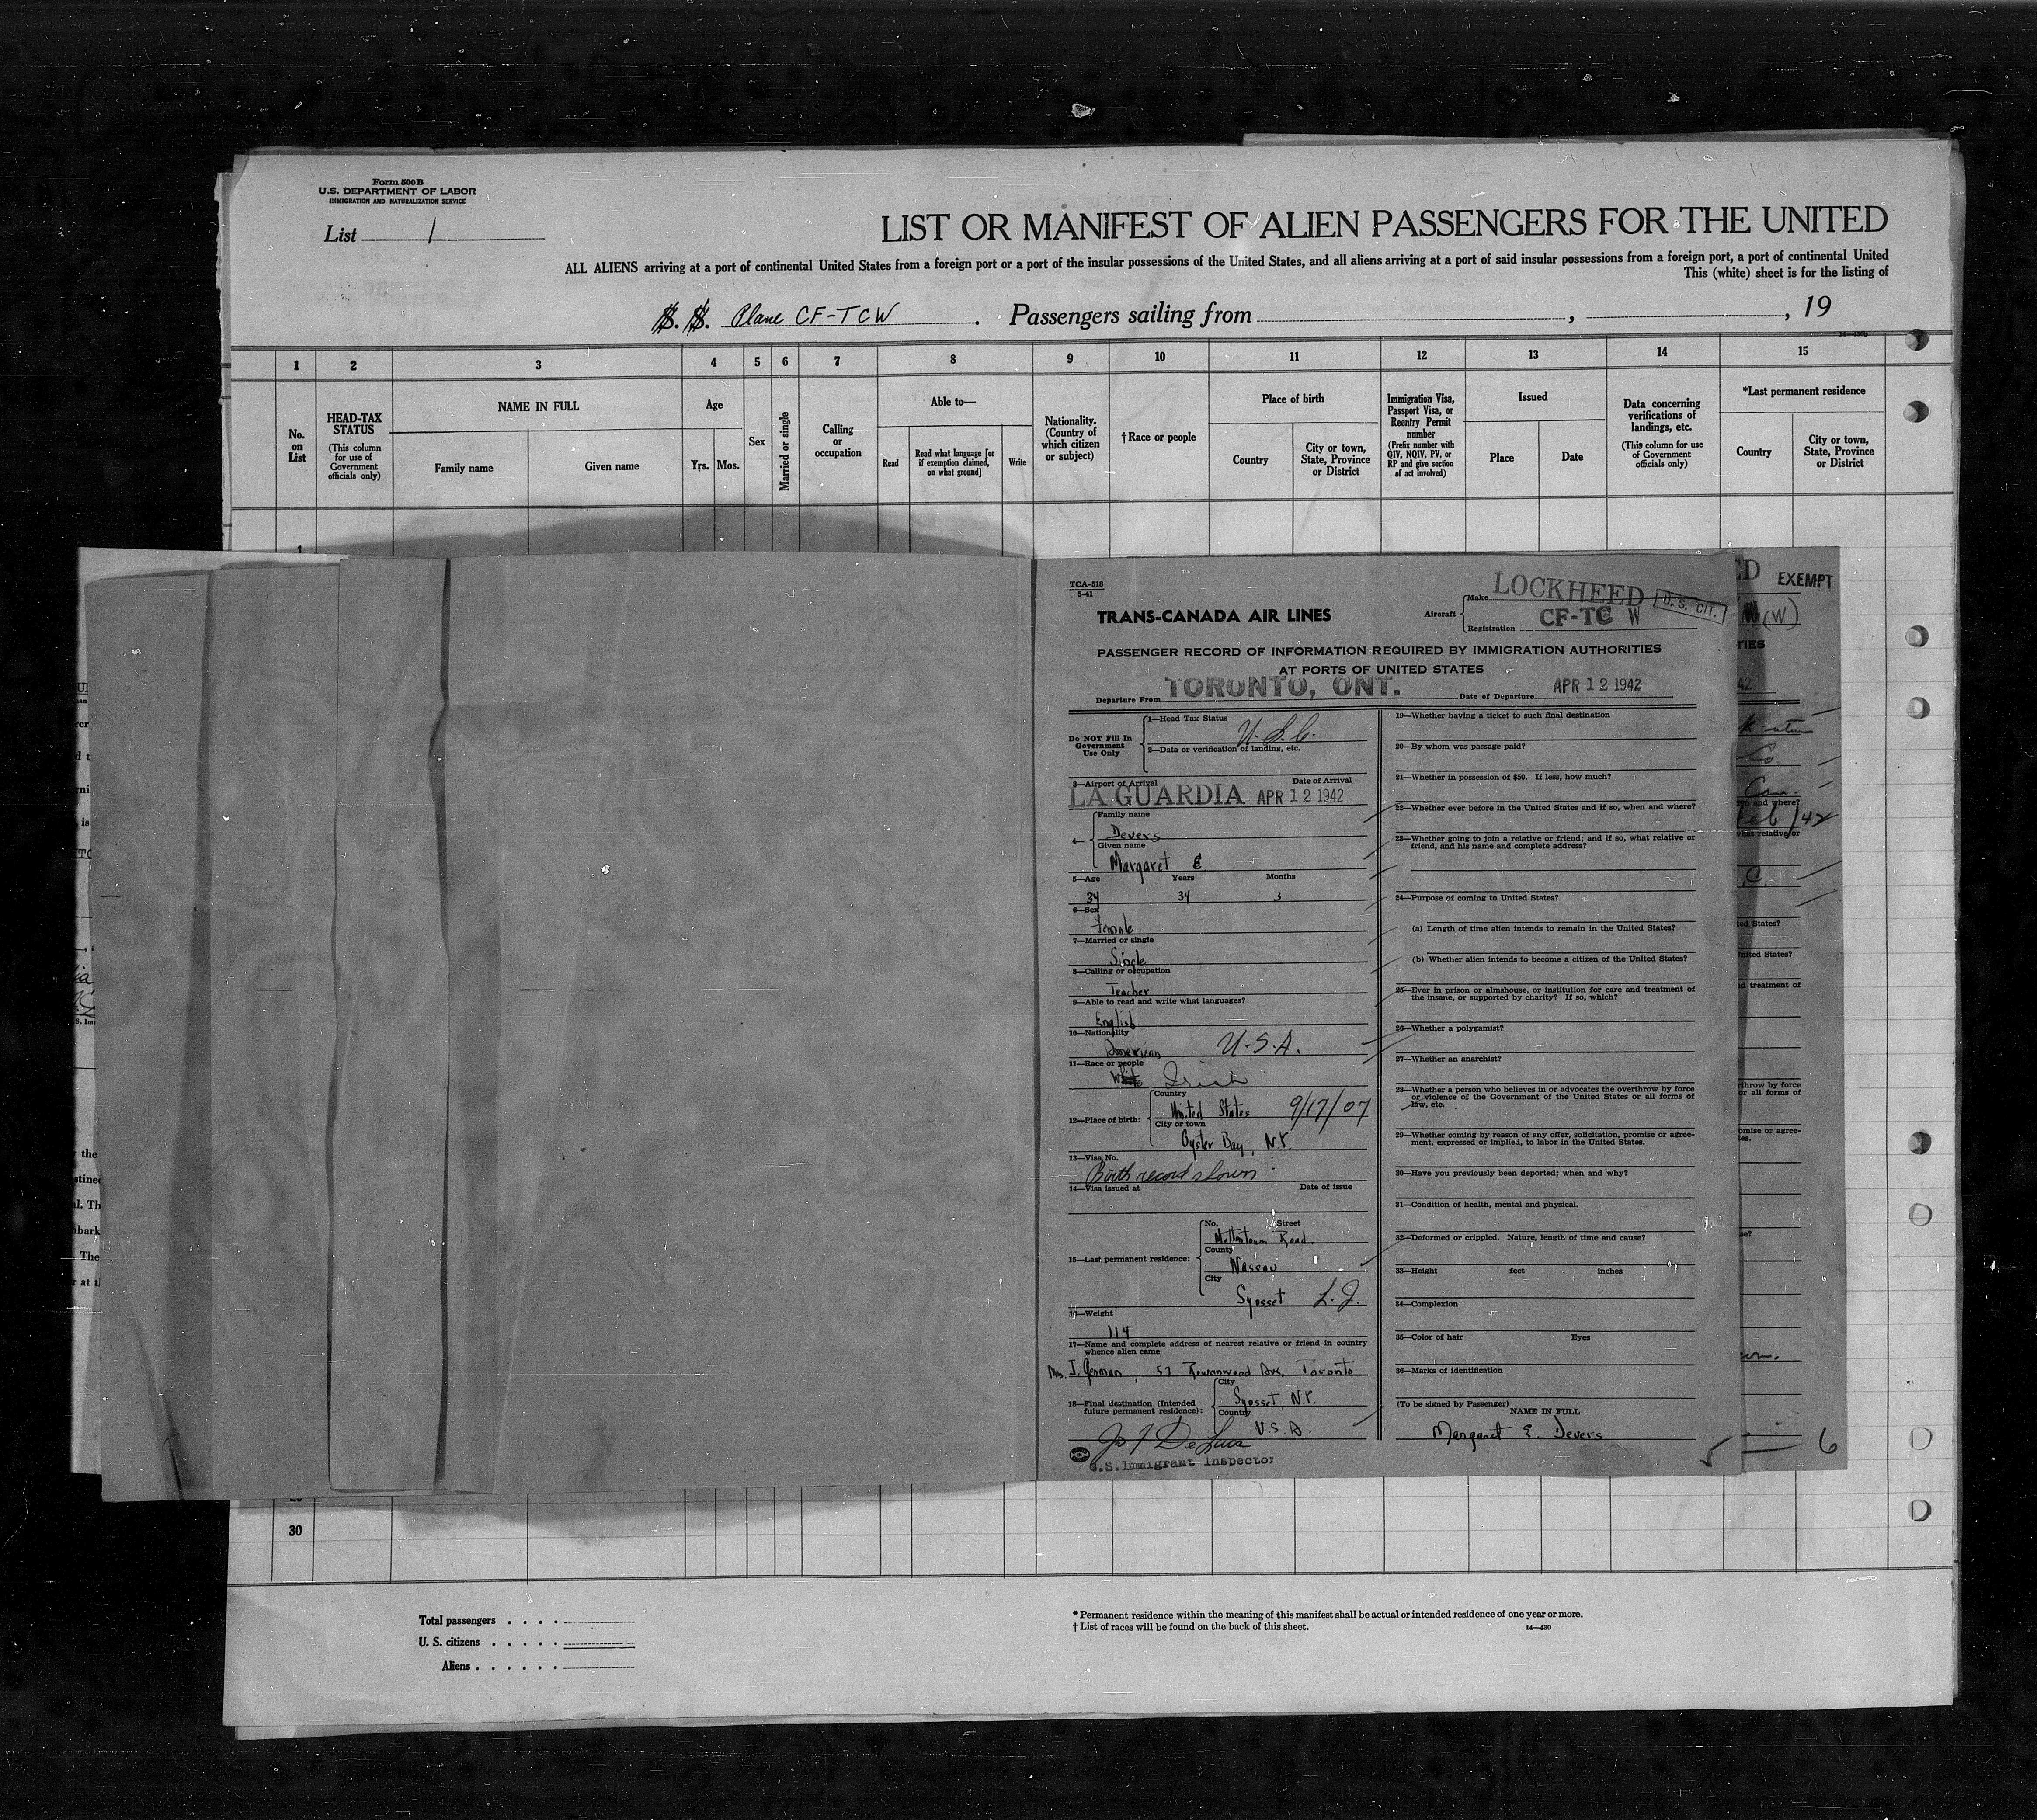 Form 500 B
U.S. DEPARTMENT OF LABOR
IMMIGRATION AND NATURALIZATION SERVICE
List 1
LIST OR MANIFEST OF ALIEN PASSENGERS FOR THE UNITED
ALL ALIENS arriving at a port of continental United States from a foreign port or a port of the insular possessions of the United States, and all aliens arriving at a port of said insular possessions from a foreign port, a port of continental United
This (white) sheet is for the listing of
S. S. Plane CF-TCW . Passengers sailing from , , 19
1 2 3 4 5 6 7 8 9 10 11 12 13 14 15
No. on List
HEAD-TAX STATUS
(This column for use of Government officials only)
NAME IN FULL
Family name Given name
Age
Yrs. Mos.
Sex
Married or single
Calling or occupation
Able to—
Read
Read what language [or if exemption claimed, on what ground]
Write
Nationality. (Country of which citizen or subject)
†Race or people
Place of birth
Country
City or town, State, Province or District
Immigration Visa, Passport Visa, or Reentry Permit number
(Prefix number with QIV, NQIV, PV, or RP and give section of act involved)
Issued
Place Date
Data concerning verifications of landings, etc.
(This column for use of Government officials only)
*Last permanent residence
Country
City or town, State, Province or District
1
TCA-518
5-41
TRANS-CANADA AIR LINES
Aircraft
Make LOCKHEED
U. S. CIT.
Registration CF-TC W
PASSENGER RECORD OF INFORMATION REQUIRED BY IMMIGRATION AUTHORITIES
AT PORTS OF UNITED STATES
Departure From TORONTO, ONT. Date of Departure APR 12 1942
Do NOT Fill In
Government
Use Only
1—Head Tax Status
U.S.C.
2—Data or verification of landing, etc.
3—Airport of Arrival Date of Arrival
LA GUARDIA APR 12 1942
4—
Family name
Devers
Given name
Margaret E.
5—Age Years Months
34 34 3
6—Sex
Female
7—Married or single
Single
8—Calling or occupation
Teacher
9—Able to read and write what languages?
English
10—Nationality
American U.S.A.
11—Race or people
White Irish
12—Place of birth:
Country
United States 9/17/07
City or town
Oyster Bay, N.Y.
13—Visa No.
Birth record shown
14—Visa issued at Date of issue
15—Last permanent residence:
No. Street
Road
County
Nassau
City
Syosset L.I.
Weight
114
17—Name and complete address of nearest relative or friend in country
whence alien came
Mrs. J. German, 57 Rowanwood Ave, Toronto
18—Final destination (Intended
future permanent residence):
City
Syosset, N.Y.
Country
U.S.A.
De Luca
U.S. Immigrant Inspector
19—Whether having a ticket to such final destination
20—By whom was passage paid?
21—Whether in possession of $50. If less, how much?
22—Whether ever before in the United States and if so, when and where?
23—Whether going to join a relative or friend; and if so, what relative or
friend, and his name and complete address?
24—Purpose of coming to United States?
(a) Length of time alien intends to remain in the United States?
(b) Whether alien intends to become a citizen of the United States?
25—Ever in prison or almshouse, or institution for care and treatment of
the insane, or supported by charity? If so, which?
26—Whether a polygamist?
27—Whether an anarchist?
28—Whether a person who believes in or advocates the overthrow by force
or violence of the Government of the United States or all forms of
law, etc.
29—Whether coming by reason of any offer, solicitation, promise or agree-
ment, expressed or implied, to labor in the United States.
30—Have you previously been deported; when and why?
31—Condition of health, mental and physical.
32—Deformed or crippled. Nature, length of time and cause?
33—Height feet inches
34—Complexion
35—Color of hair Eyes
36—Marks of identification
(To be signed by Passenger)
NAME IN FULL
Margaret E. Devers
5
EXEMPT
(W)
42
Can.
Feb/42
what relative or
ted States?
United States?
d treatment of
throw by force
or all forms of
omise or agree-
6
30
Total passengers . . . .
U. S. citizens . . . . .
Aliens . . . . . .
* Permanent residence within the meaning of this manifest shall be actual or intended residence of one year or more.
† List of races will be found on the back of this sheet.
14—430